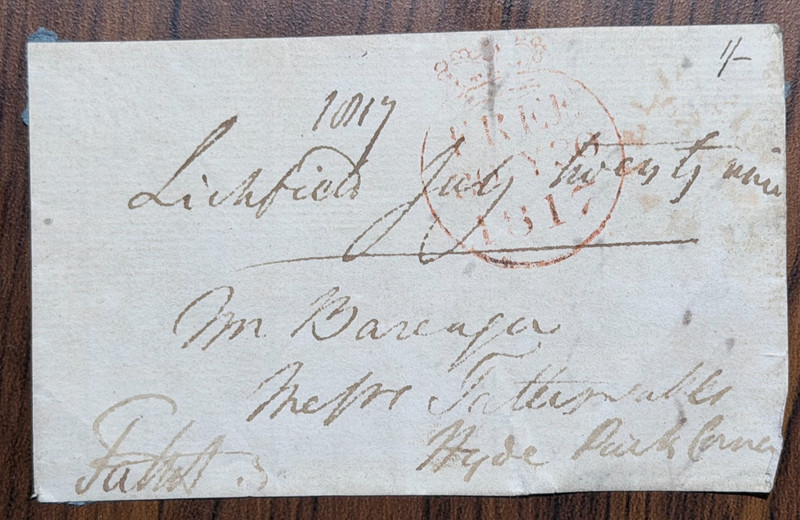 1/-
1817
Lichfield July twenty nine
FREE
1817
Mr Barenger
Messrs Tattersalls
Hyde Park Corner
Talbot